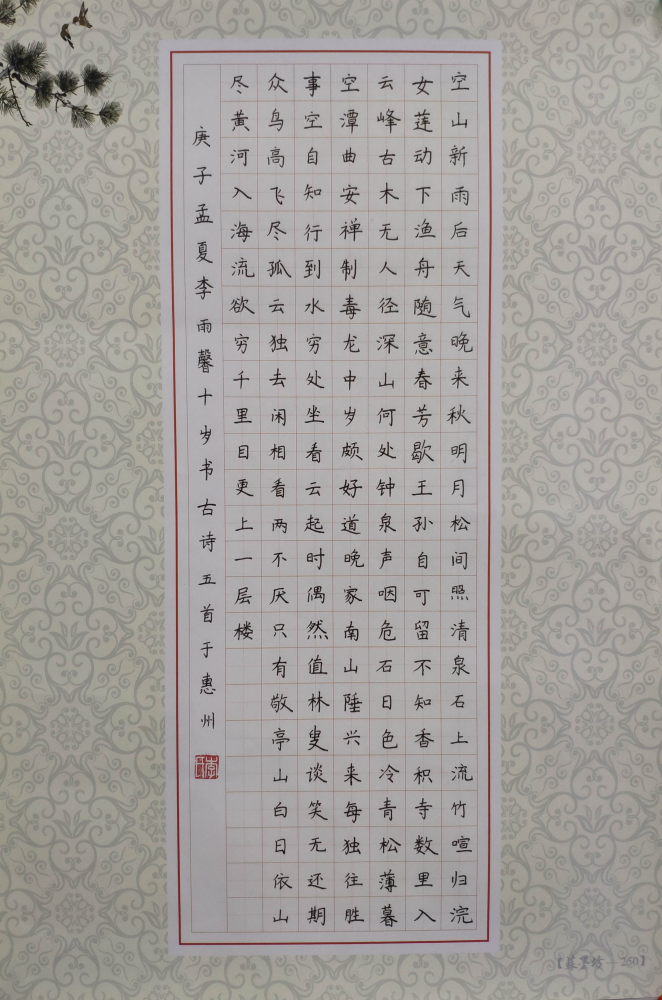 空山新雨后天气晚来秋明月松间照清泉石上流竹喧归浣
女莲动下渔舟随意春芳歇王孙自可留不知香积寺数里入
云峰古木无人径深山何处钟泉声咽危石日色冷青松薄暮
空潭曲安禅制毒龙中岁颇好道晚家南山陲兴来每独往胜
事空自知行到水穷处坐看云起时偶然值林叟谈笑无还期
众鸟高飞尽孤云独去闲相看两不厌只有敬亭山白日依山
尽黄河入海流欲穷千里目更上一层楼
庚子孟夏李雨馨十岁书古诗五首于惠州
李氏